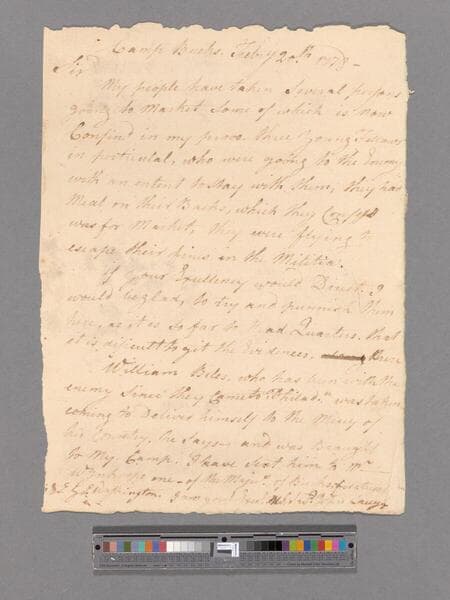 Camp Bucks. Feby 20th 1778 -
Sir
My people have taken Several persons
going to Market Some of which is now
Confind in my provo three Young
in particular, who were going to the Enemy
with an intent to Stay with them, they had
Meal on their Backs, which they
was for Market, they were flying to
escape their fines in the Militia.
If your Excellency would Direct. I
would be glad to try and punnish them
hire, as it is so far to Head Quarters. that
it is dificult to git the Evidences there
William Biles. who has bin with the
enemy Since they Came to Philad.a was taken
coming to Deliver himself to the Mercy of
his Country. he Says - and was Braught
to My Camp. I have Sent him to Mr
one of the of Bucks
Washington. I am your